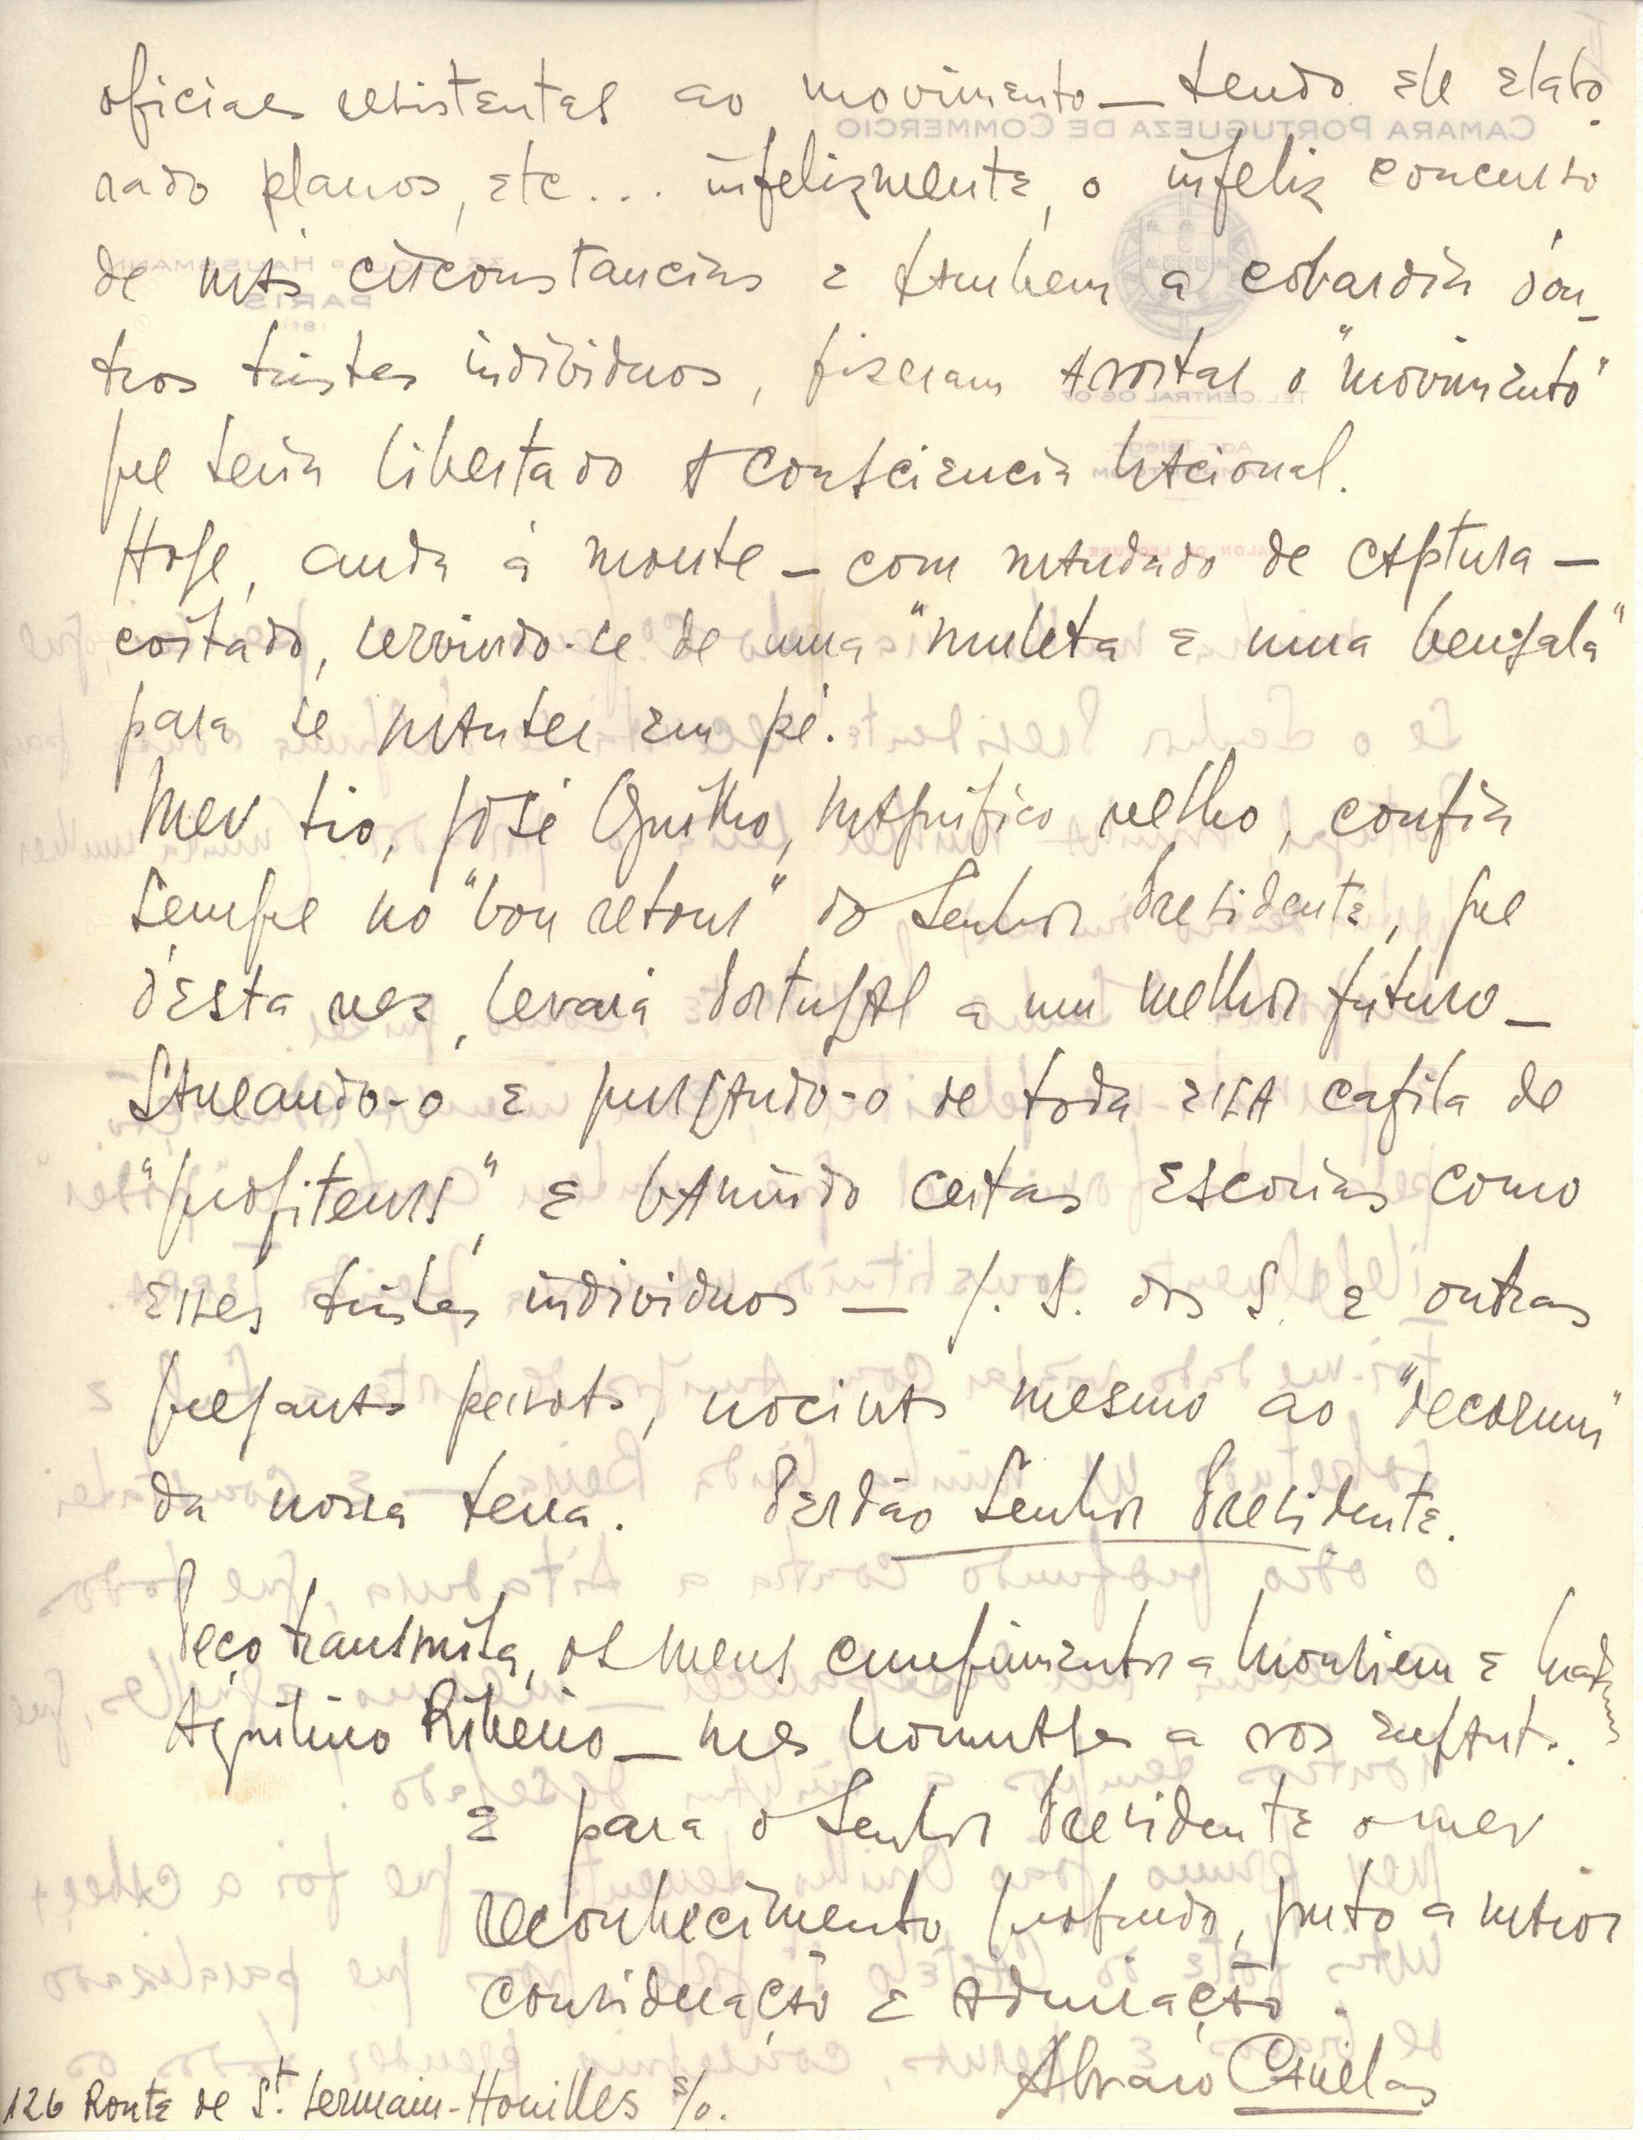 oficiaes resistentes ao movimento — tendo ele elabo-
rado planos, etc... infelizmente, o infeliz concurso
de más circonstancias e tambem a cobardia d'ou-
tros tristes individuos, fizeram abortar o "movimento"
que teria libertado a consciencia nacional.
Hoje, anda á monte — com mandado de captura —
coitado, servindo-se de uma "muleta e uma bengala"
para se manter em pé.
Meu tio, José Quilhó, magnifico velho, confia
sempre no "bon retour" do Senhor Presidente, que
d'esta vez, levará Portugal a um melhor futuro —
Saneando-o e purgando-o de toda essa cafila de
"profiteurs", e banindo certas escorias como
esses tristes individuos — J. S. dos S. e outras
mesmo ao "decorum"
da nossa terra. Perdão Senhor Presidente.
Peço transmita, os meus cumprimentos a Monsieur e Madame
Aquilino Ribeiro — mes hommages a vos enfants.
e para o Senhor Presidente o meu
reconhecimento profundo, junto a maior
consideração e admiração.
Alvaro
126 Route de St. Germain - Houilles S/O.
CAMARA PORTUGUEZA DE COMMERCIO
PARIS